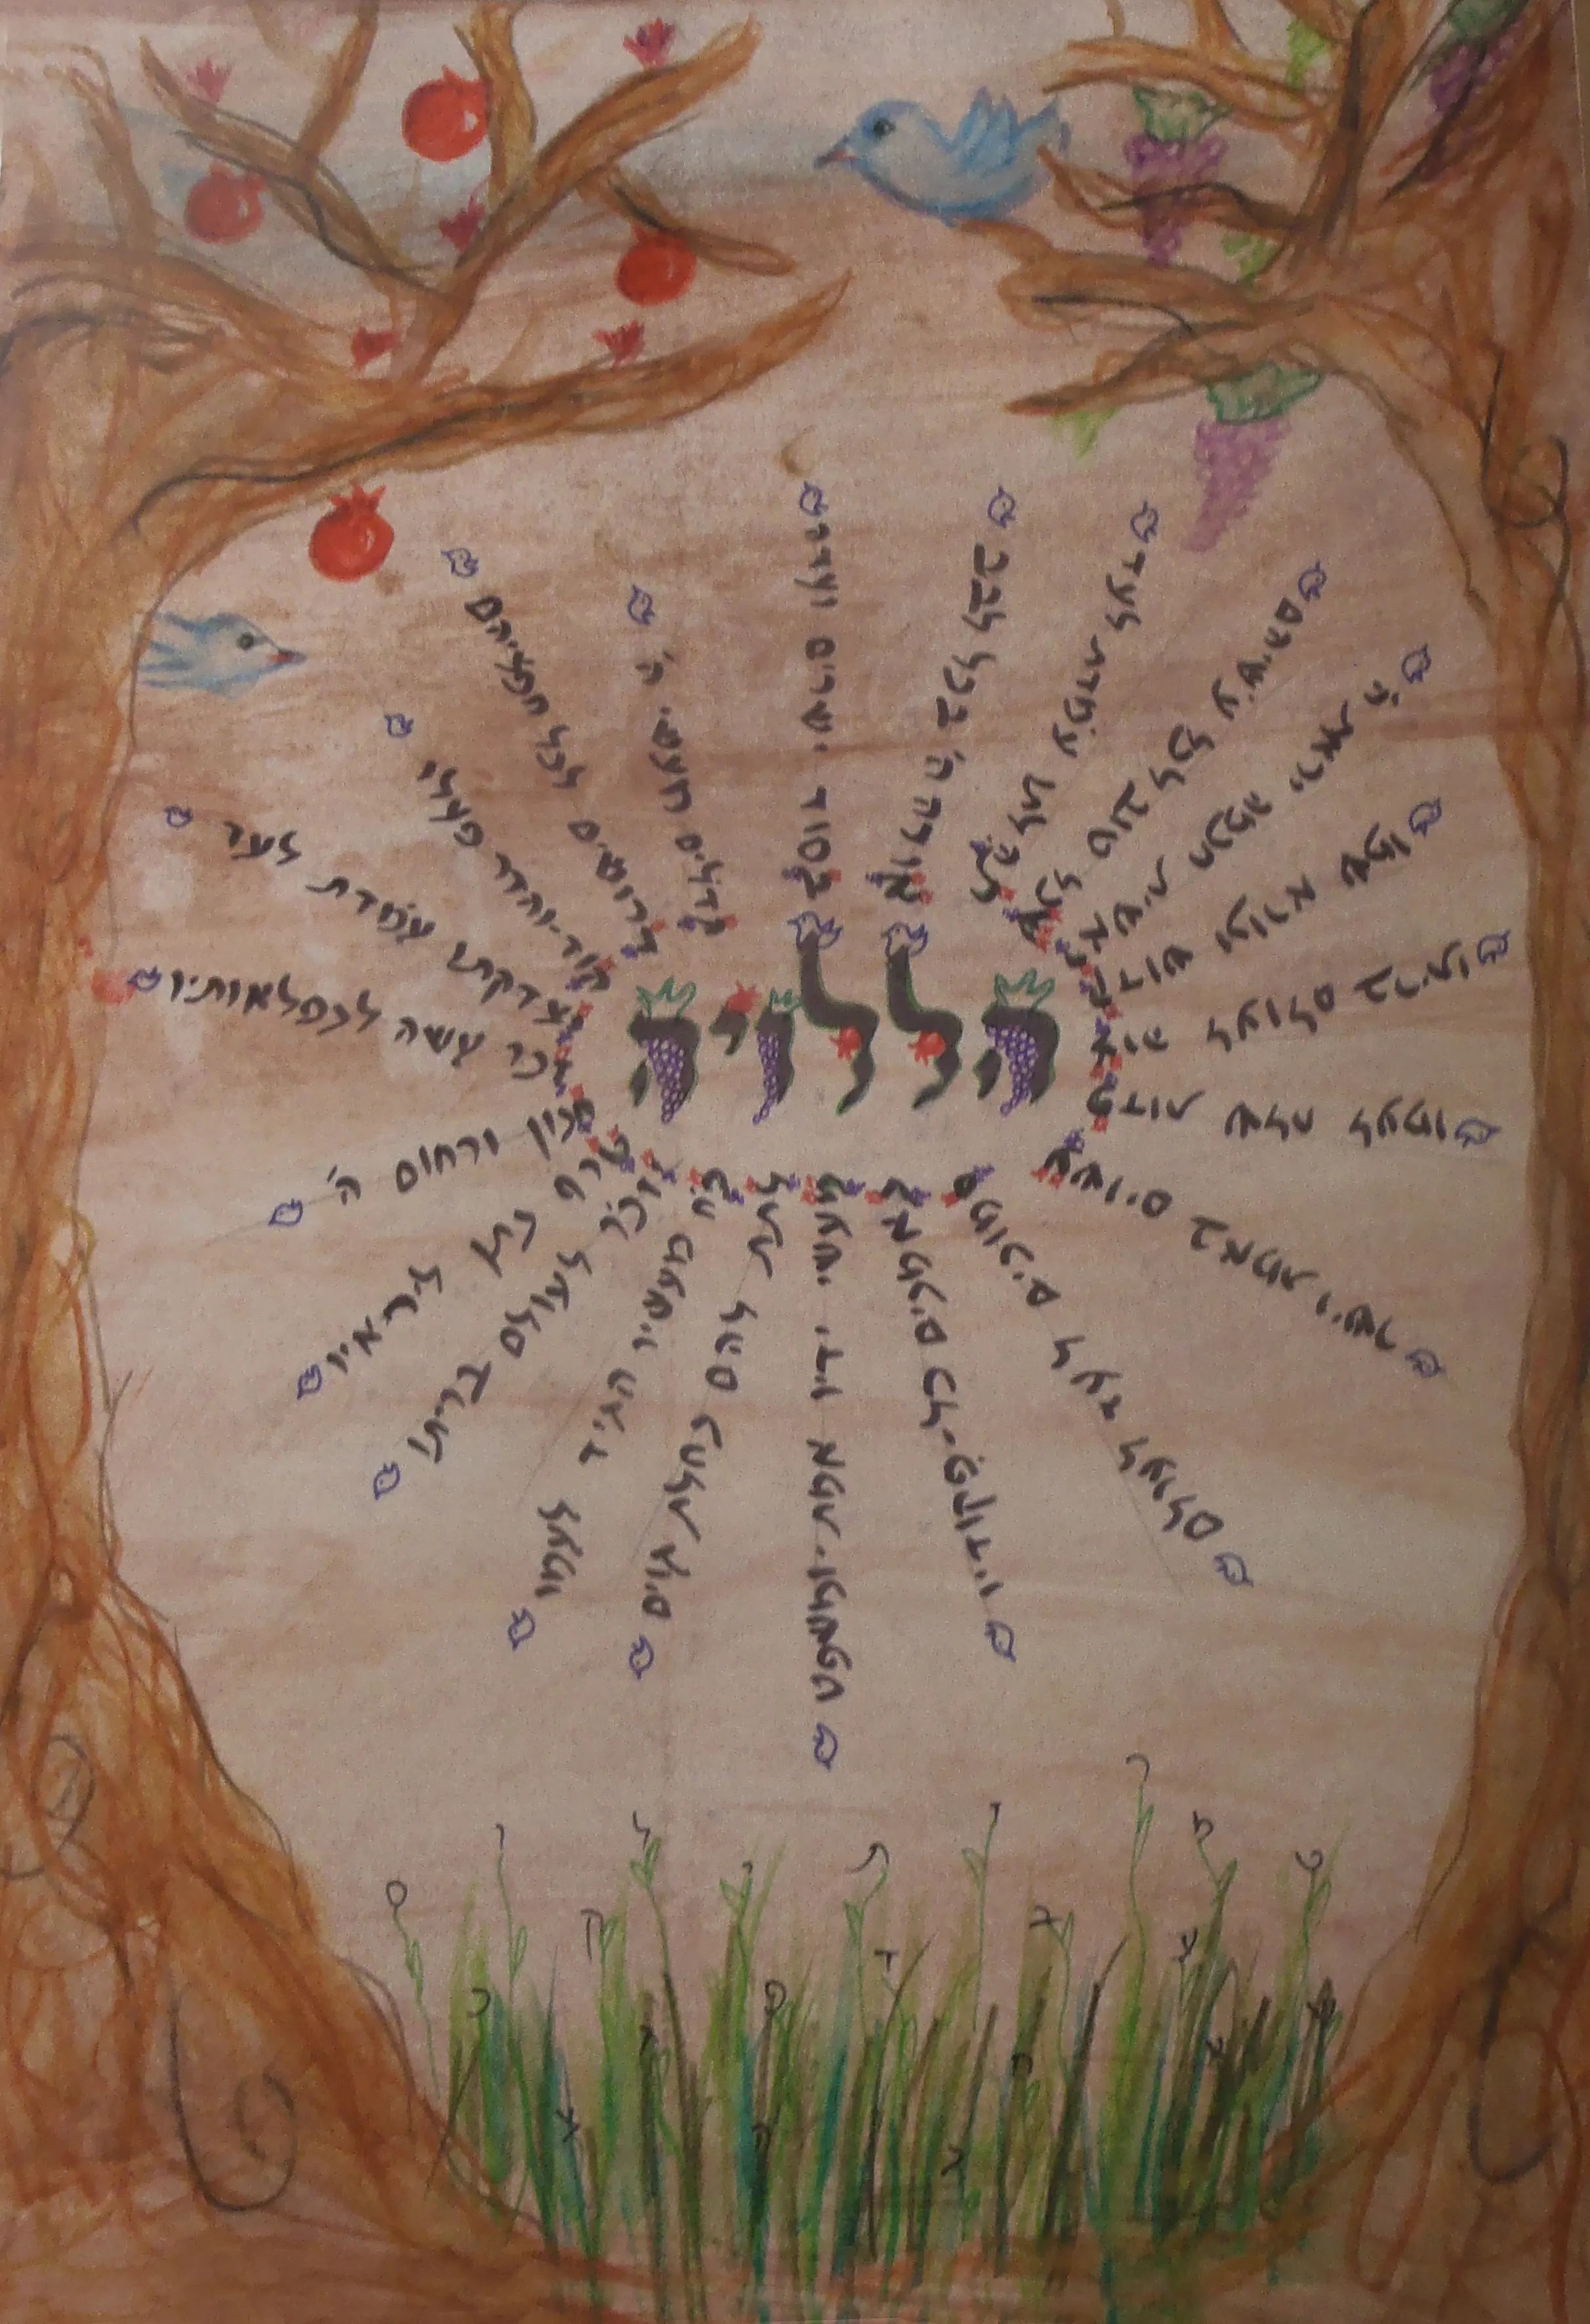 הללויה
אודה ה' בכל לבב
בסוד ישרים ועדה
גדלים מעשי ה'
דרושים לכל חפציהם
הוד-והדר פעלו
וצדקתו עמדת לעד
זכר עשה לנפלאותיו
חנון ורחום ה'
טרף נתן ליראיו
יזכר לעולם בריתו
כח מעשיו הגיד לעמו
לתת להם נחלת גוים
מעשי ידיו אמת ומשפט
נאמנים כל-פקודיו
סמוכים לעד לעולם
עשוים באמת וישר
פדות שלח לעמו
צוה לעולם בריתו
קדוש ונורא שמו
ראשית חכמה יראת ה'
שכל טוב לכל עשיהם
תהלתו עמדת לעד